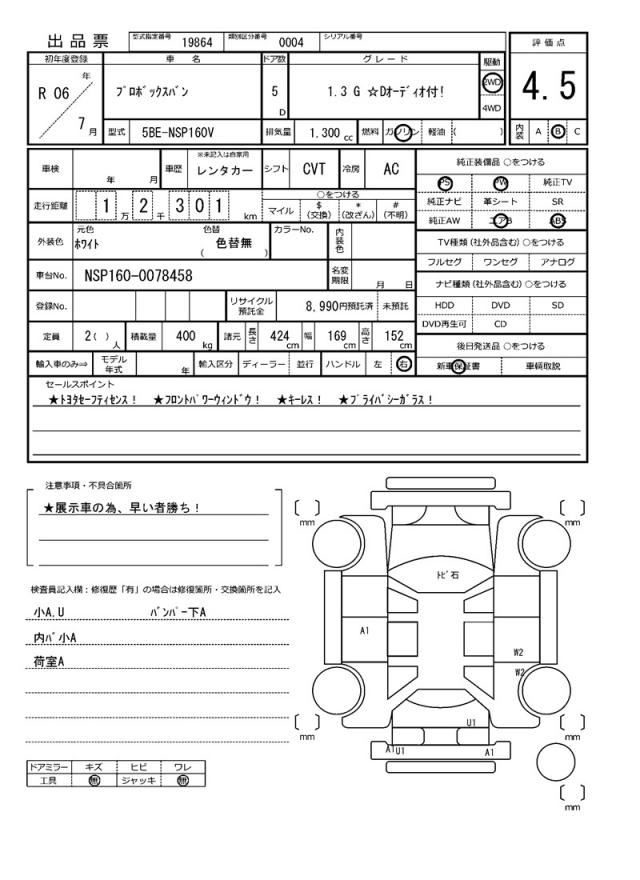 出品票 型式指定番号 19864 類別区分番号 0004 シリアル番号
評価点
4.5
初年度登録 車名 ドア数 グレード 駆動
R 06 年 7 月 プロボックスバン 5 D 1.3 G ☆Dオーディオ付! 2WD 4WD
型式 5BE-NSP160V 排気量 1.300 cc 燃料 ガソリン 軽油 ( ) 内装 A B C
車検 年 月 車歴 ※未記入は自家用 レンタカー シフト CVT 冷房 AC
走行距離 1 万 2 千 3 0 1 km ○をつける
マイル $(交換) *(改ざん) #(不明)
外装色 元色 ホワイト 色替 ( 色替無 ) カラーNo. 内装色
車台No. NSP160-0078458 名変期限 月 日
登録No. リサイクル預託金 8,990円預託済 未預託
定員 2( ) 人 積載量 400 kg 諸元 長さ 424 cm 幅 169 cm 高さ 152 cm
輸入車のみ⇒ モデル年式 年 輸入区分 ディーラー 並行 ハンドル 左 右
純正装備品 ○をつける
PS PW 純正TV
純正ナビ 革シート SR
純正AW エアB ABS
TV種類 (社外品含む) ○をつける
フルセグ ワンセグ アナログ
ナビ種類 (社外品含む) ○をつける
HDD DVD SD
DVD再生可 CD
後日発送品 ○をつける
新車保証書 車輌取説
セールスポイント
★トヨタセーフティセンス! ★フロントパワーウィンドウ! ★キーレス! ★プライバシーガラス!
注意事項・不具合箇所
★展示車の為、早い者勝ち!
検査員記入欄:修復歴「有」の場合は修復箇所・交換箇所を記入
小A.U バンパー下A
内バ小A
荷室A
ドアミラー キズ ヒビ ワレ
工具 無 ジャッキ 無
[ ] mm
[ ] mm
トビ石
A1
W2
W2
U1
[ ] mm
[ ] mm
A1U1
A1
[ ] mm